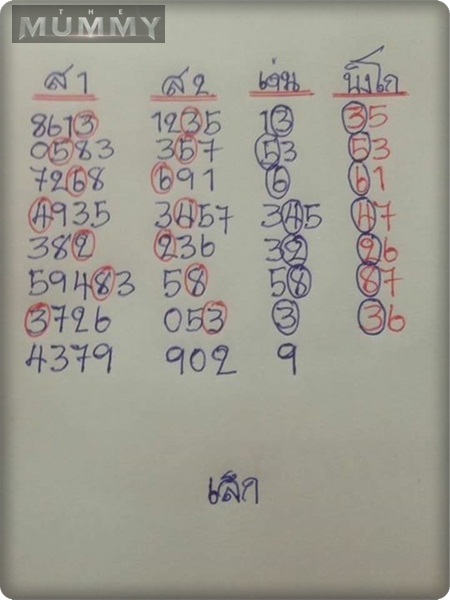 THE
MUMMY
ส1 ส2 เด่น บิงโก
8613 1235 13 35
0583 357 53 53
7268 691 6 61
4935 3457 345 47
382 236 32 26
59483 58 58 87
3726 053 3 36
4379 902 9